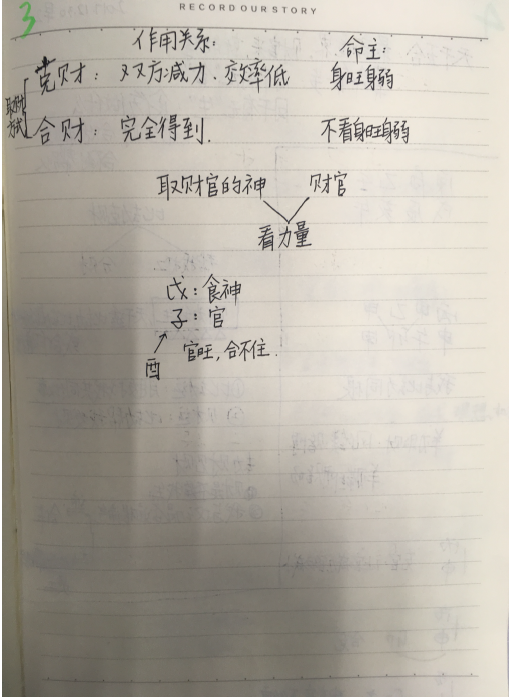 3
RECORD OUR STORY
作用关系: 命主:
取财方式
克财: 双方减力、效率低 身旺身弱
合财: 完全得到. 不看身旺身弱
取财官的神 财官
看力量
戊: 食神
子: 官
酉 官旺,合不住.